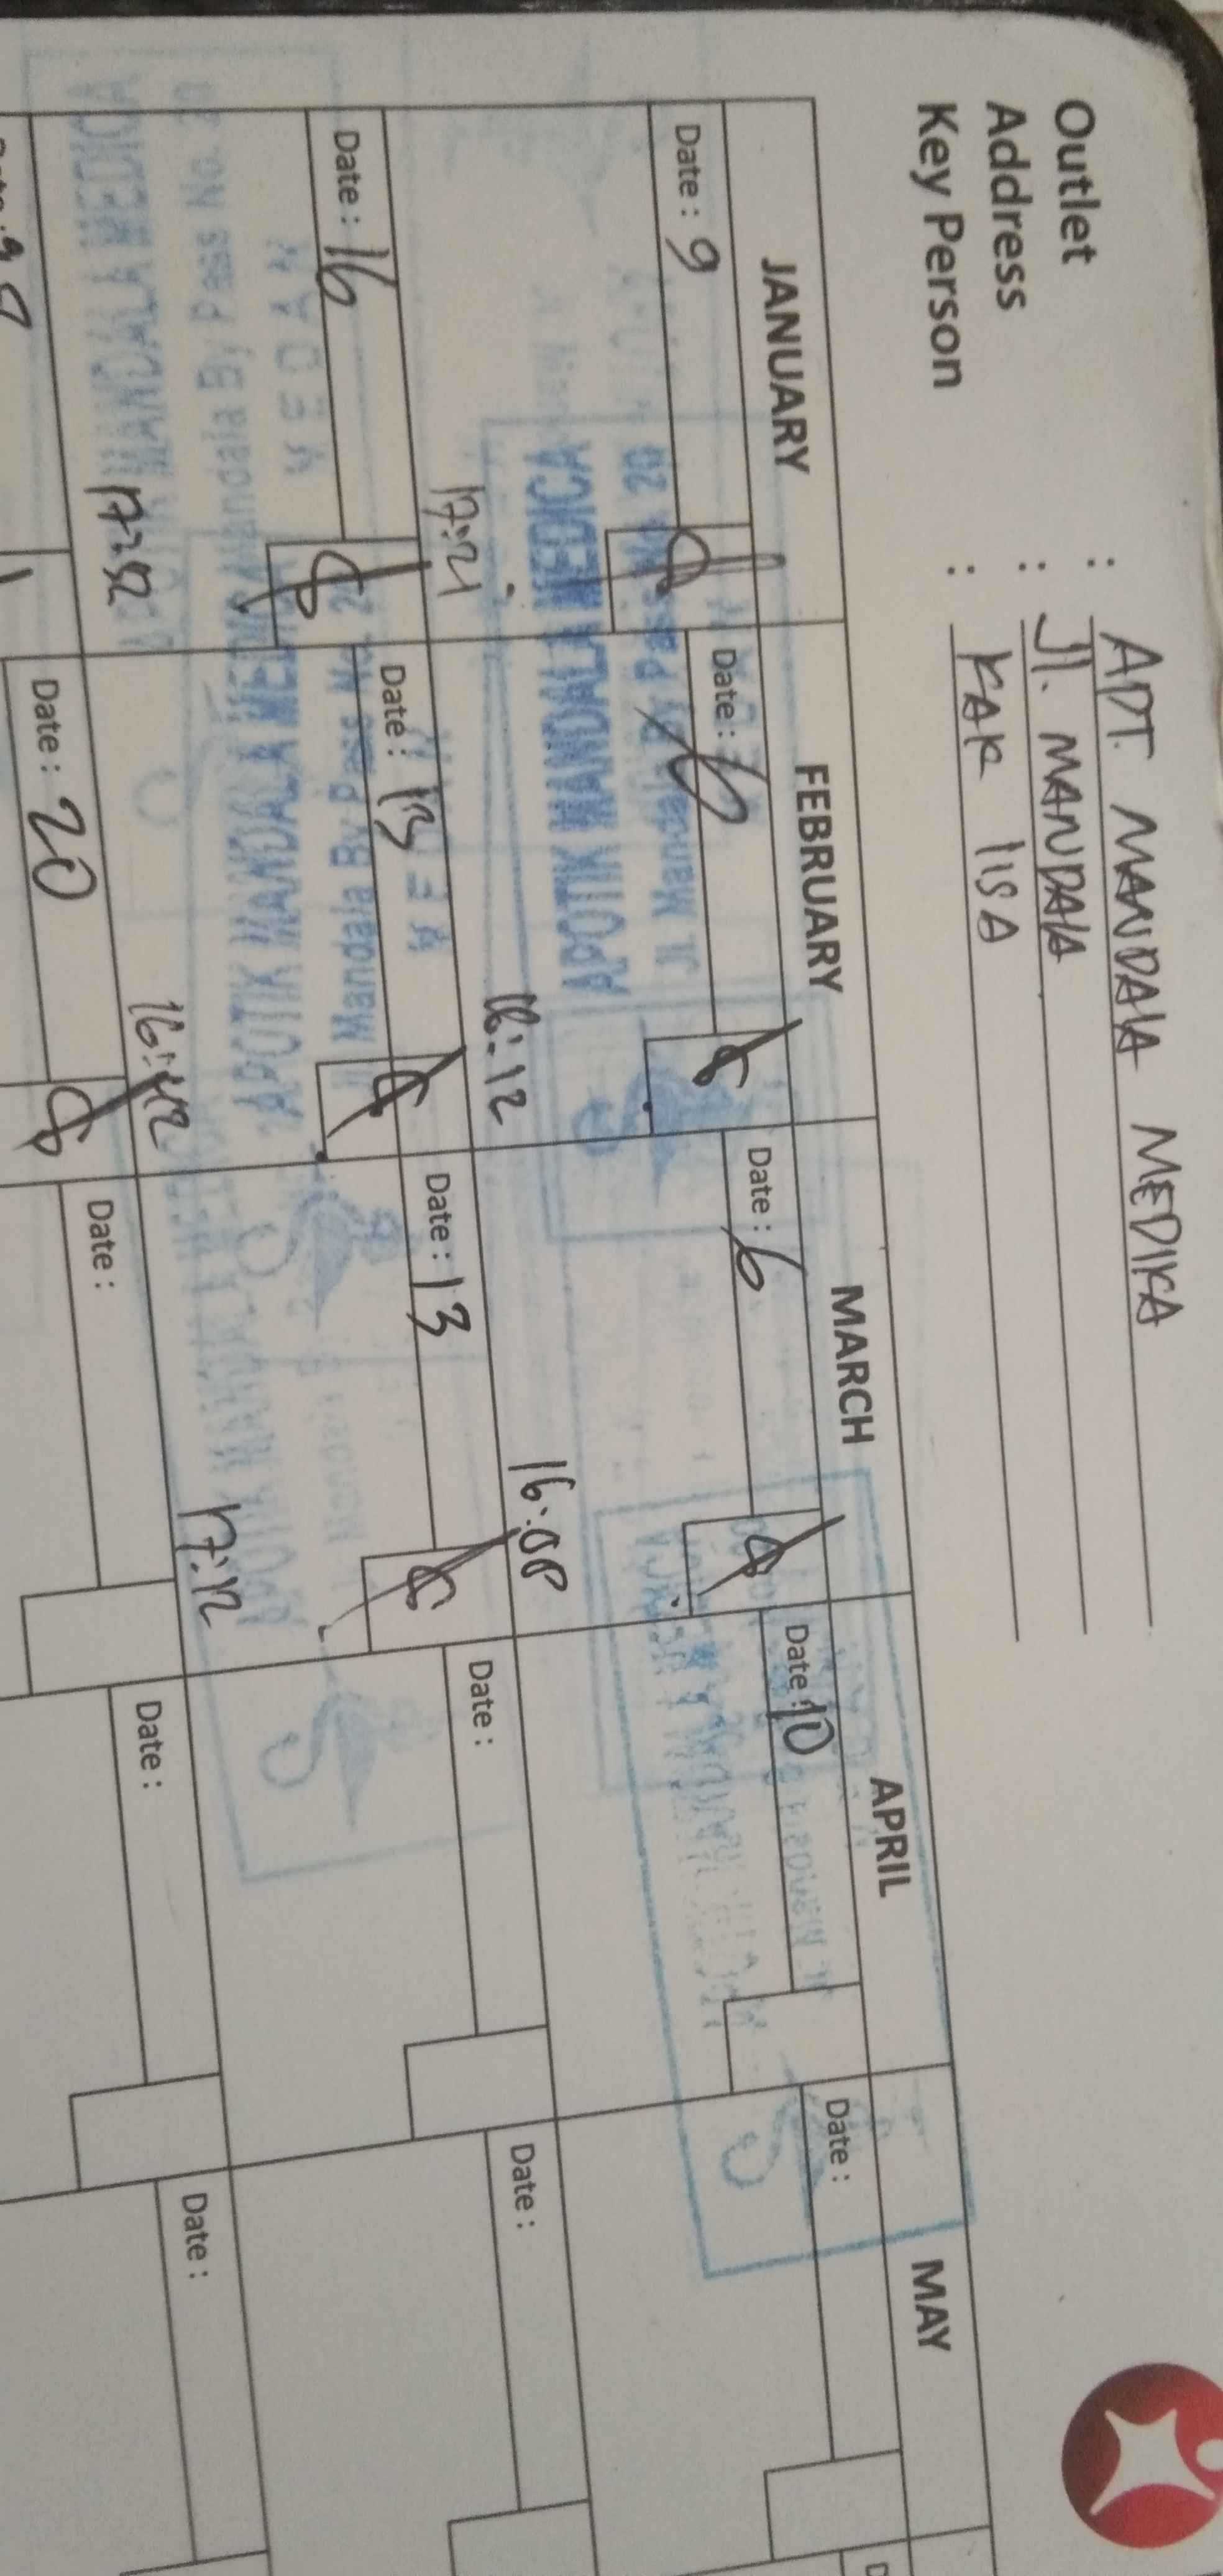 Outlet : APT. MANDALA MEDIKA
Address : Jl. MANDALA
Key Person : KAK LISA
JANUARY FEBRUARY MARCH APRIL MAY
Date : 9 Date : 6 Date : 6 Date : 10 Date :
17:21 16:12 16:08
Date : 16 Date : 13 Date : 13 Date : Date :
17:52 16:42 17:12
Date : 20 Date : Date : Date :